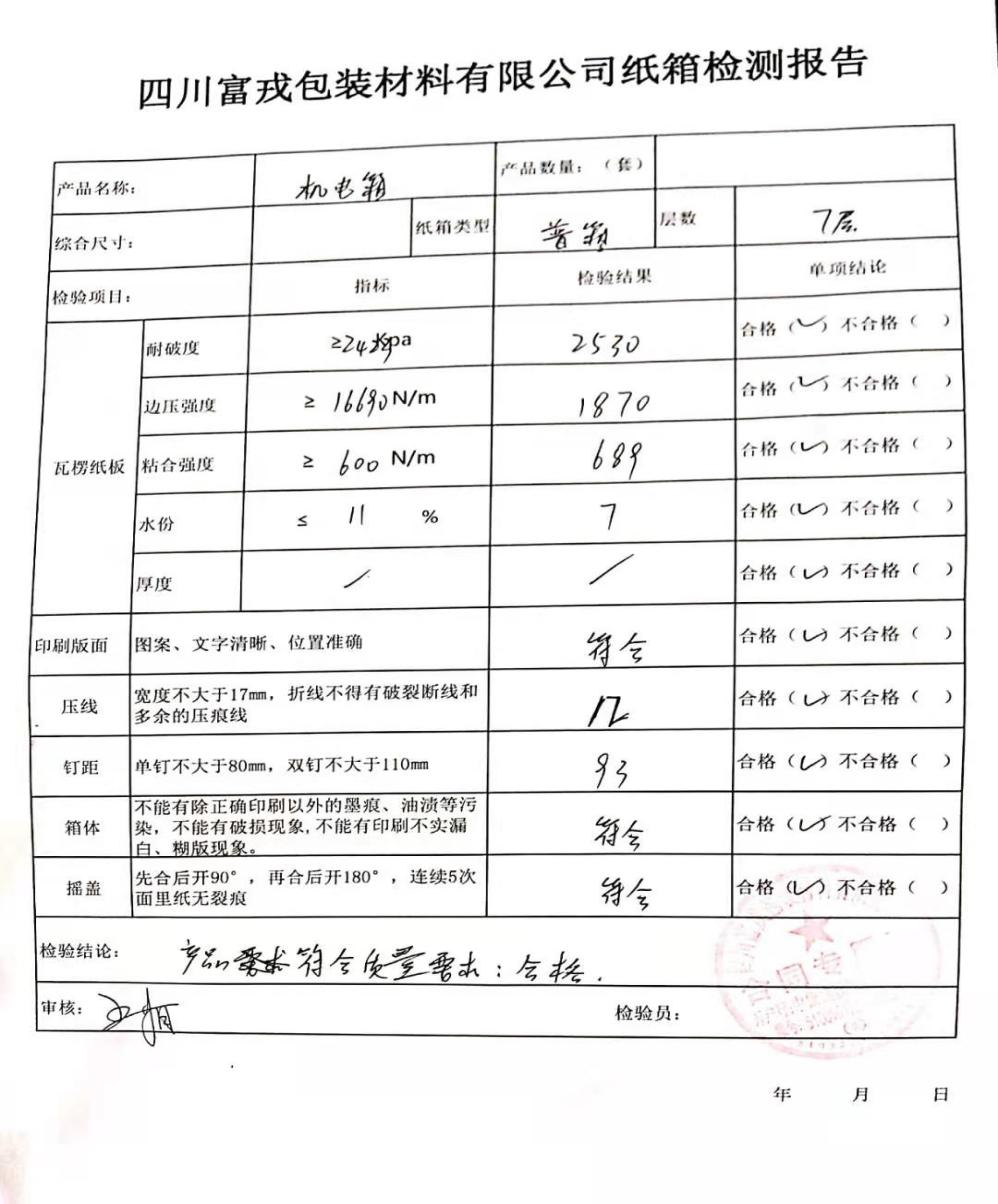 四川富戎包装材料有限公司纸箱检测报告
产品名称： 机电箱 产品数量：（套）
综合尺寸： 纸箱类型 普箱 层数 7层
检验项目： 指标 检验结果 单项结论
瓦楞纸板
耐破度 2530 合格（✓）不合格（ ）
边压强度 ≥ N/m 1870 合格（✓）不合格（ ）
粘合强度 ≥ 600 N/m 689 合格（✓）不合格（ ）
水份 ≤ 11 % 7 合格（✓）不合格（ ）
厚度 / / 合格（✓）不合格（ ）
印刷版面 图案、文字清晰、位置准确 符合 合格（✓）不合格（ ）
压线 宽度不大于17mm，折线不得有破裂断线和
多余的压痕线 12 合格（✓）不合格（ ）
钉距 单钉不大于80mm，双钉不大于110mm 93 合格（✓）不合格（ ）
箱体 不能有除正确印刷以外的墨痕、油渍等污
染，不能有破损现象,不能有印刷不实漏
白、糊版现象。 符合 合格（✓）不合格（ ）
摇盖 先合后开90°，再合后开180°，连续5次
面里纸无裂痕 符合 合格（✓）不合格（ ）
检验结论： 产品 符合质量要求：合格.
审核： 检验员：
合同专
年 月 日